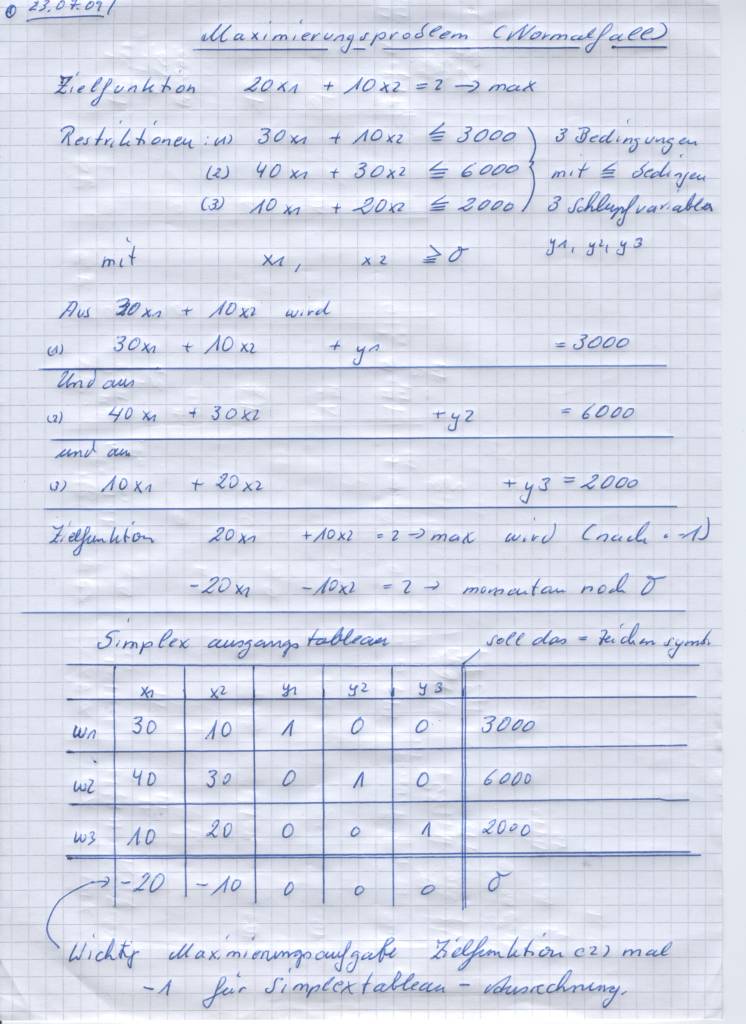 ① 23.07.09/
Maximierungsproblem (Normalfall)
Zielfunktion 20x1 + 10x2 = z → max
Restriktionen: (1) 30x1 + 10x2 ≦ 3000 } 3 Bedingungen
(2) 40x1 + 30x2 ≦ 6000 mit ≦ bedingen
(3) 10x1 + 20x2 ≦ 2000 3 Schlupfvariablen
mit x1, x2 ≧ 0 y1, y2, y3
Aus 30x1 + 10x2 wird
(1) 30x1 + 10x2 + y1 = 3000
Und aus
(2) 40x1 + 30x2 + y2 = 6000
und aus
(3) 10x1 + 20x2 + y3 = 2000
Zielfunktion 20x1 + 10x2 = z → max wird (nach · -1)
-20x1 -10x2 = z → momentan noch 0
Simplex ausgangstableau soll das = Zeichen symb.
x1 x2 y1 y2 y3
w1 30 10 1 0 0 3000
w2 40 30 0 1 0 6000
w3 10 20 0 0 1 2000
→ -20 -10 0 0 0 0
Wichtig Maximierungsaufgabe Zielfunktion (z) mal
-1 für Simplextableau - Ausrechnung.